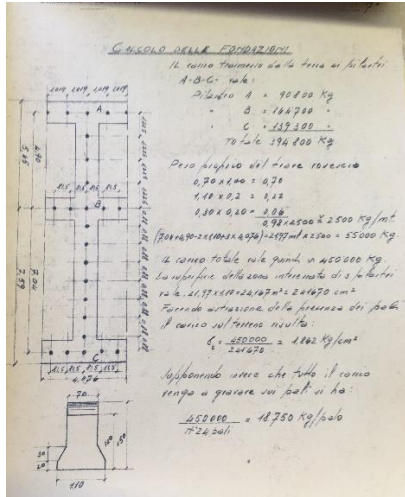 CALCOLO DELLE FONDAZIONI
IL carico trasmesso dalla terra ai pilastri
A-B-C- vale:
Pilastro A = 90800 Kg
" B = 164700 "
" C = 139300 "
Totale 394800 Kg
Peso proprio del trave rovescio
0,70 x 1,00 = 0,70
1,10 x 0,2 = 0,22
0,30 x 0,20 = 0,06
0,98 x 2500 Kg/mt
= 21,97 mt x 2500 = 55000 Kg.
IL carico totale vale quindi 450000 Kg.
La superficie della zona interessata di 3 pilastri
vale, 21,97 x 1,10 = 24,167 m² = 241670 cm²
Facendo astrazione della presenza dei pali
il carico sul terreno risulta:
450000 / 241670 = 1,862 Kg/cm²
Supponendo invece che tutto il carico
venga a gravare sui pali si ha:
450000 / n° 24 pali = 18750 Kg/palo
1,019 1,019 1,019 1,019
A
4,90
5,05
81,5 81,5 81,5 81,5
B
7,04
7,59
C
81,5 81,5 81,5 81,5
4,076
70
30
20
110